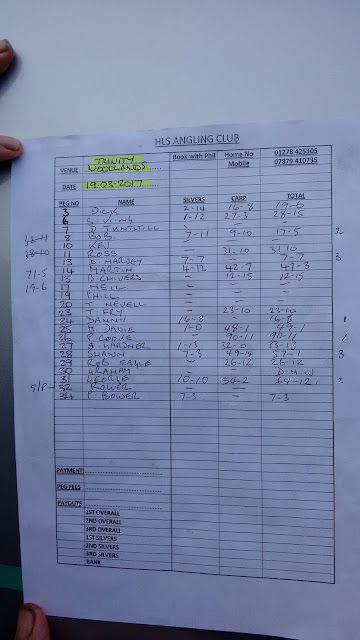 HLS ANGLING CLUB
VENUE TRINITY WOODLANDS Book with Phil Home No 01278 425105
Mobile 07879 410735
DATE 19-03-2017
PEG NO NAME SILVERS CARP TOTAL
3 DICK 2-14 16-8 19-6
6 1-12 27-3 28-15
7 D — — —
8 BOB 7-11 9-10 17-5 2
10 KEV — — —
11 ROSS — 31-10 31-10
13 D HARVEY 7-7 — 7-7 3
14 MARTIN 4-12 42-7 47-3
15 B CHIVERS — 12-15 12-15
71-5 17 NEIL — — —
19-6 19 PHILL — — —
20 T NEVELL — — —
23 T FRY — 23-10 23-10
24 DANNY 16-8 — 16-8 1
25 M DAVIE 1-0 48-1 49-1
26 P COOKE — 90-11 90-11 1
27 S GARDNER 1-13 32-0 33-13
28 SHAWN 7-3 49-14 57-1 3
29 ROB EAGLE — 26-12 26-12
30 GRAHAM — — D.N.W
31 GEORGE 10-10 54-2 64-12 2
S/P 32 ROGER — —
34 P BOWER 7-3 — 7-3
PAYMENT
PEG FEES
PAYOUTS
1ST OVERALL
2ND OVERALL
3RD OVERALL
1ST SILVERS
2ND SILVERS
3RD SILVERS
BANK